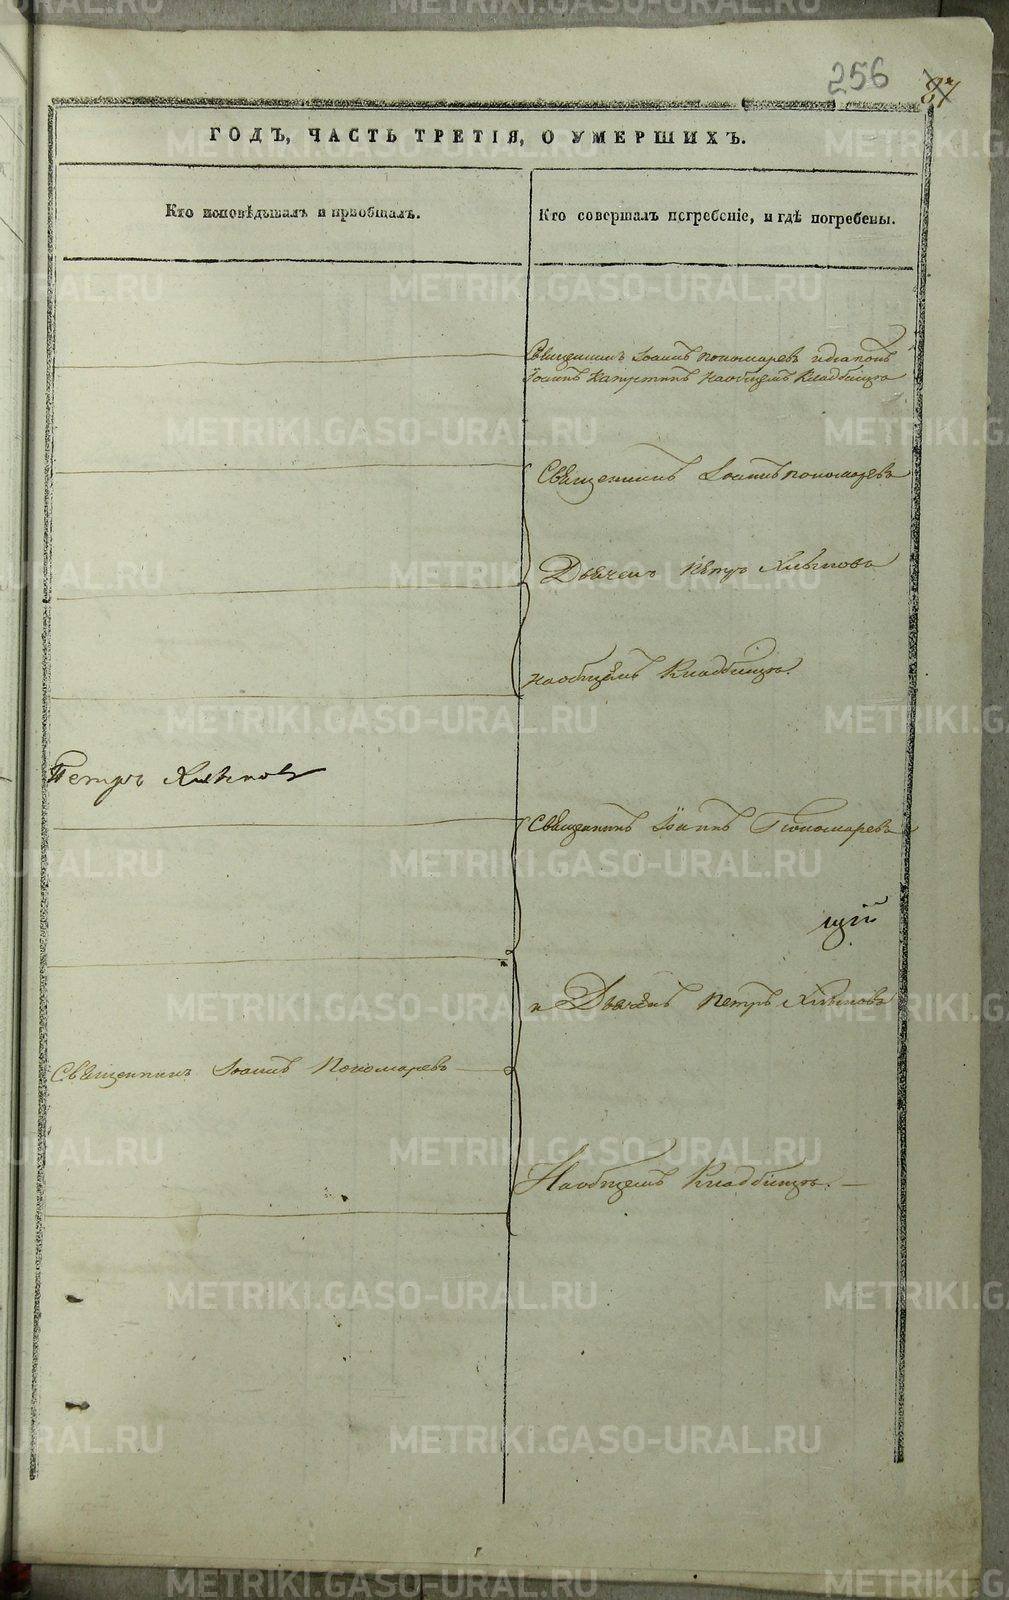 256
27
ГОДЪ, ЧАСТЬ ТРЕТІЯ, О УМЕРШИХЪ.
Кто исповѣдывалъ и пріобщалъ.
Кто совершалъ погребеніе, и гдѣ погребены.
Священникъ Іоаннъ Пономаревъ идіаконъ
Іоаннъ Капустинъ наобщемъ Кладбищѣ
Священникъ Іоаннъ пономаревъ
Дьячекъ Пётръ Хлыновъ
наобщемъ Кладбищѣ.
Петръ Хлыновъ
Священникъ Іоаннъ Пономаревъ
щій
и Дьячёкъ Петръ Хлыновъ
Священникъ Іоаннъ Пономаревъ
Наобщемъ Кладбищѣ.
METRIKI.GASO-URAL.RU